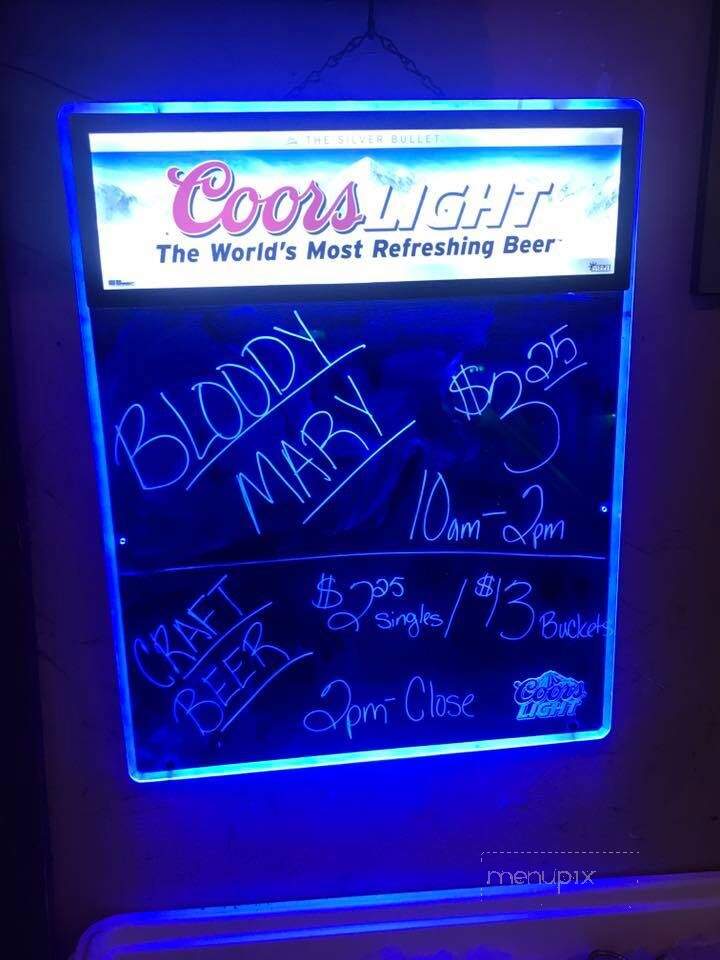 THE SILVER BULLET
Coors LIGHT
The World's Most Refreshing Beer
BLOODY
MARY
$3.25
10am-2pm
CRAFT
BEER
$2.25 Singles / $13 Buckets
2pm-Close
Coors
LIGHT
menupix